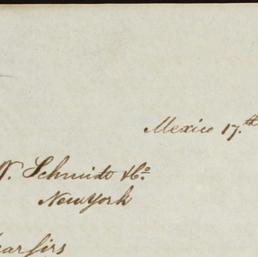 Mexico 17.th
W. Schmidt & Co.
New York
ear Sirs